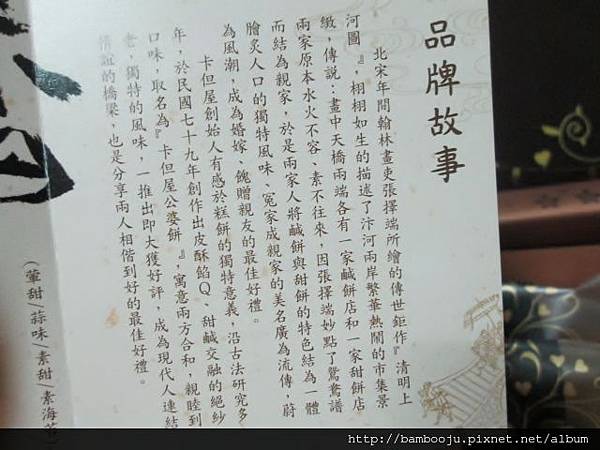 品牌故事
北宋年間翰林畫吏張擇端所繪的傳世鉅作『清明上
河圖』，栩栩如生的描述了汴河兩岸繁華熱鬧的市集景
緻，傳說：畫中天橋兩端各有一家鹹餅店和一家甜餅店
兩家原本水火不容、素不往來，因張擇端妙點了鴛鴦譜
而結為親家，於是兩家人將鹹餅與甜餅的特色結為一體
膾炙人口的獨特風味、冤家成親家的美名廣為流傳，蔚
為風潮，成為婚嫁、餽贈親友的最佳好禮。
卡但屋創始人有感於糕餅的獨特意義，沿古法研究多
年，於民國七十九年創作出皮酥餡Q、甜鹹交融的絕妙
口味，取名為『卡但屋公婆餅』，寓意兩方合和，親睦到
老，獨特的風味，一推出即大獲好評，成為現代人連結
情誼的橋樑，也是分享兩人相偕到好的最佳好禮。
（葷甜/蒜味/素甜/素海苔
http://bambooju.pixnet.net/album